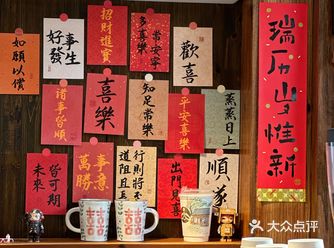 如願以償
好事
發生
招財進寶
多喜樂
常安寧
歡喜
諸事皆順
喜樂
知足常樂
平安喜樂
蒸蒸日上
未來
皆可期
萬事
勝意
道阻且長
行則將至
出門見喜
順遂
瑞历岁惟新
囍
囍
大众点评